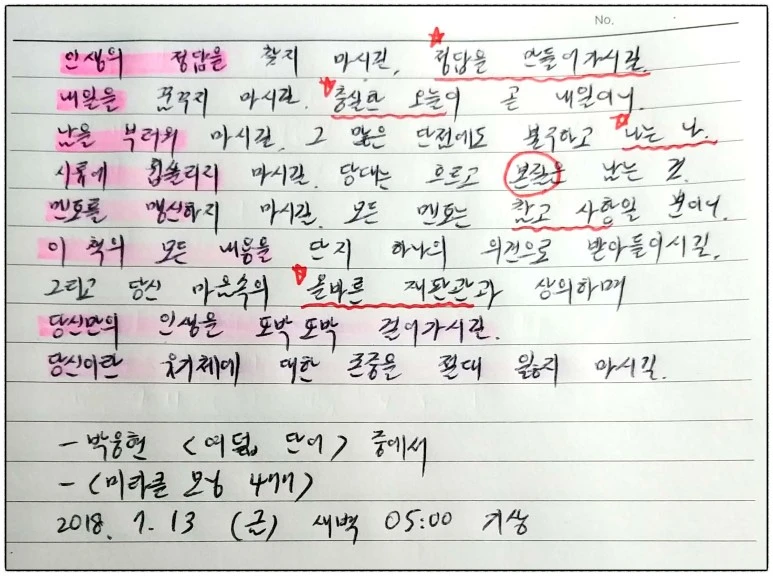 No.
인생의 정답을 찾지 마시길. 정답을 만들어가시길.
내일을 꿈꾸지 마시길. 충실한 오늘이 곧 내일이니.
남을 부러워 마시길. 그 많은 단점에도 불구하고 나는 나.
시류에 휩쓸리지 마시길. 당대는 흐르고 본질은 남는 것.
멘토를 맹신하지 마시길. 모든 멘토는 참고 사항일 뿐이니.
이 책의 모든 내용을 단지 하나의 의견으로 받아들이시길.
그리고 당신 마음속의 올바른 재판관과 상의하며
당신만의 인생을 또박 또박 걸어가시길.
당신이란 유기체에 대한 존중을 절대 잃지 마시길.
- 박웅현 <여덟 단어> 중에서
- <미라클 모닝 477>
2018. 7. 13 (금) 새벽 05:00 기상